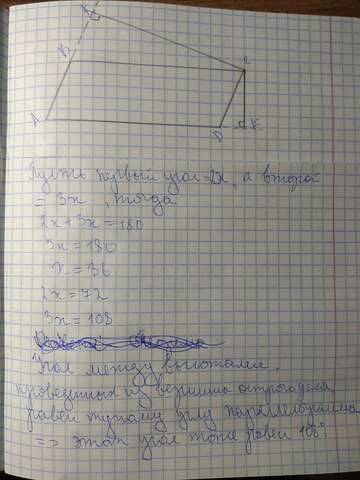 B
C
A
D
K
Пусть первый угол = 2x, а второй
= 3x, тогда
2x + 3x = 180
5x = 180
x = 36
2x = 72
3x = 108
Угол между высотами,
проведённых из вершины острого угла,
равен тупому углу параллелограмма
=> этот угол тоже равен 108°